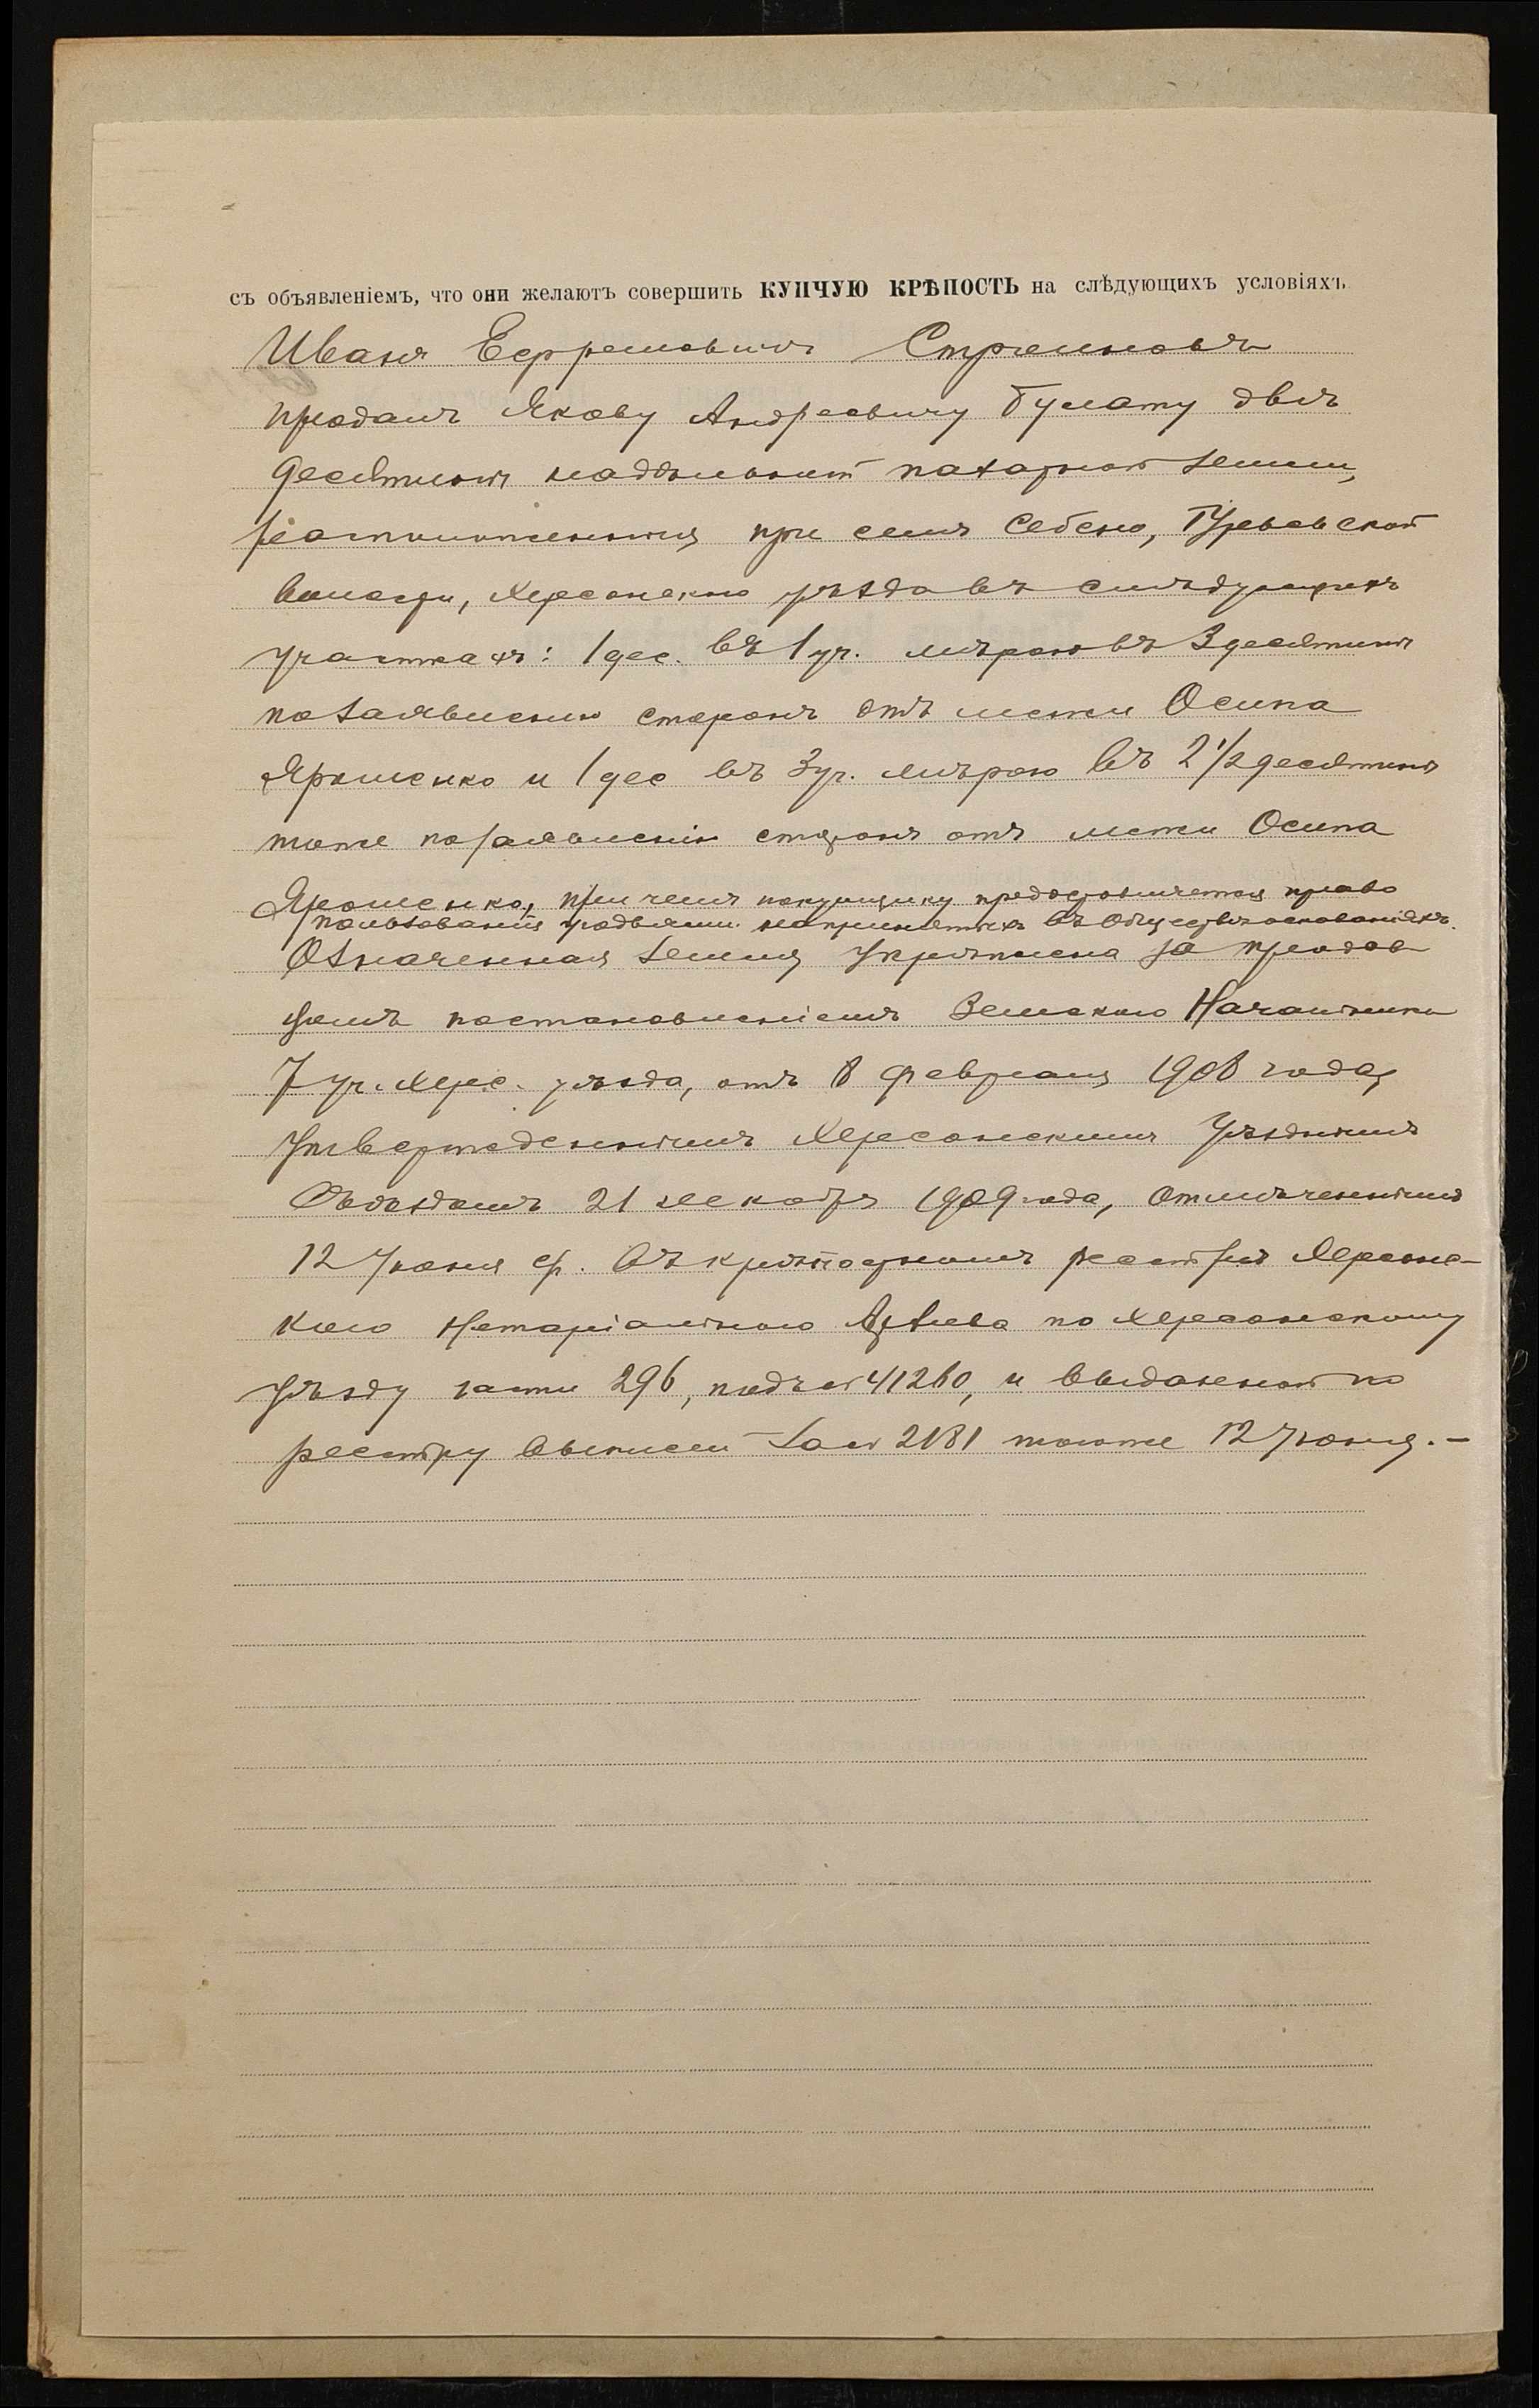 съ объявленіемъ, что они желаютъ совершить КУПЧУЮ КРѢПОСТЬ на слѣдующихъ условіяхъ
Иванъ Ефремовичъ Стрѣльновъ
продалъ Якову Андреевичу Булату двѣ
десятины надѣльной пахатной земли,
расположенныя при селѣ Себено, Гурьевской
волости, Херсонскаго уѣзда въ слѣдующихъ
участкахъ: 1 дес. въ 1 уч. мѣрою въ 3 десятины
по заявленію сторонъ отъ межи Осипа
Ярошенко и 1 дес въ 3 уч. мѣрою въ 2 1/2 десятины
тоже по заявленію сторонъ отъ межи Осипа
Ярошенко, при чемъ покупщику предоставляется право
пользованія угодьями на принятыхъ въ обществѣ основаніяхъ.
Означенная земля укрѣплена за продав
цомъ постановленіемъ Земскаго Начальника
7 уч. Херс. уѣзда, отъ 8 февраля 1908 года,
утвержденнымъ Херсонскимъ Уѣзднымъ
Съѣздомъ 21 декабря 1909 года, отмѣченнымъ
12 Іюня с/г. въ крѣпостномъ реестрѣ Херсонс-
каго Нотаріальнаго Архива по Херсонскому
уѣзду части 296, подъ № 41260, и выданной по
реестру выписи за № 2181 тоже 12 Іюня. –